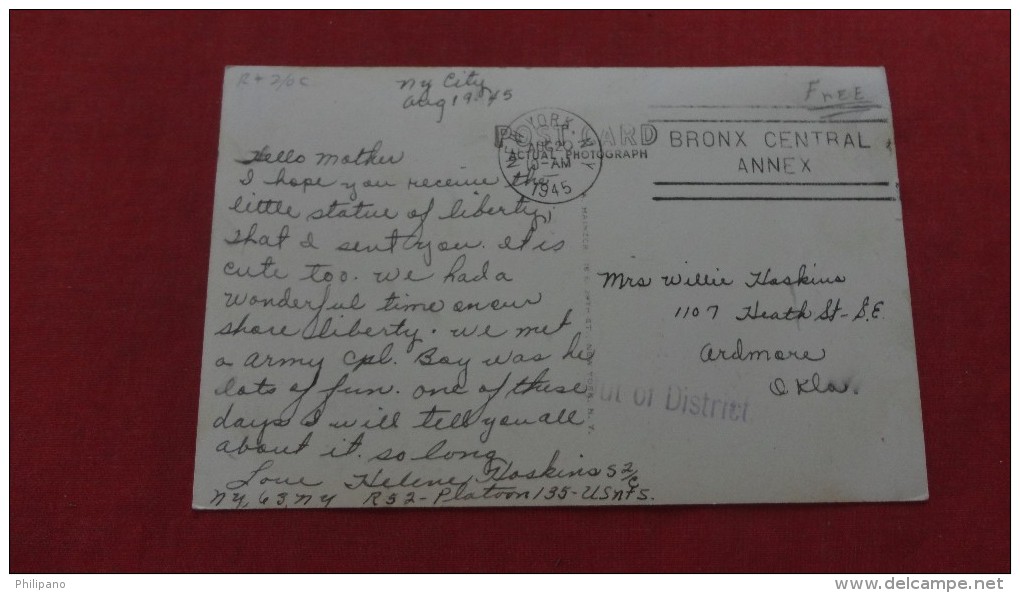 NY City
Aug 19 45
Free
POST CARD
ACTUAL PHOTOGRAPH
NEW YORK, N.Y.
AUG 20
10-AM
1945
BRONX CENTRAL
ANNEX
Hello Mother
I hope you receive the
little statue of liberty,
that I sent you. It is
cute too. We had a
wonderful time on our
shore liberty. We met
a army Cpl. Boy was he
lots of fun. One of these
days I will tell you all
about it. So long
Love Helene Hoskins S2/c
NY, 63, NY R52-Platoon 135-USNTS.
Mrs Willie Hoskins
1107 Heath St-S.E.
Ardmore
Okla.
ut of District.
Philipano
www.delcampe.net